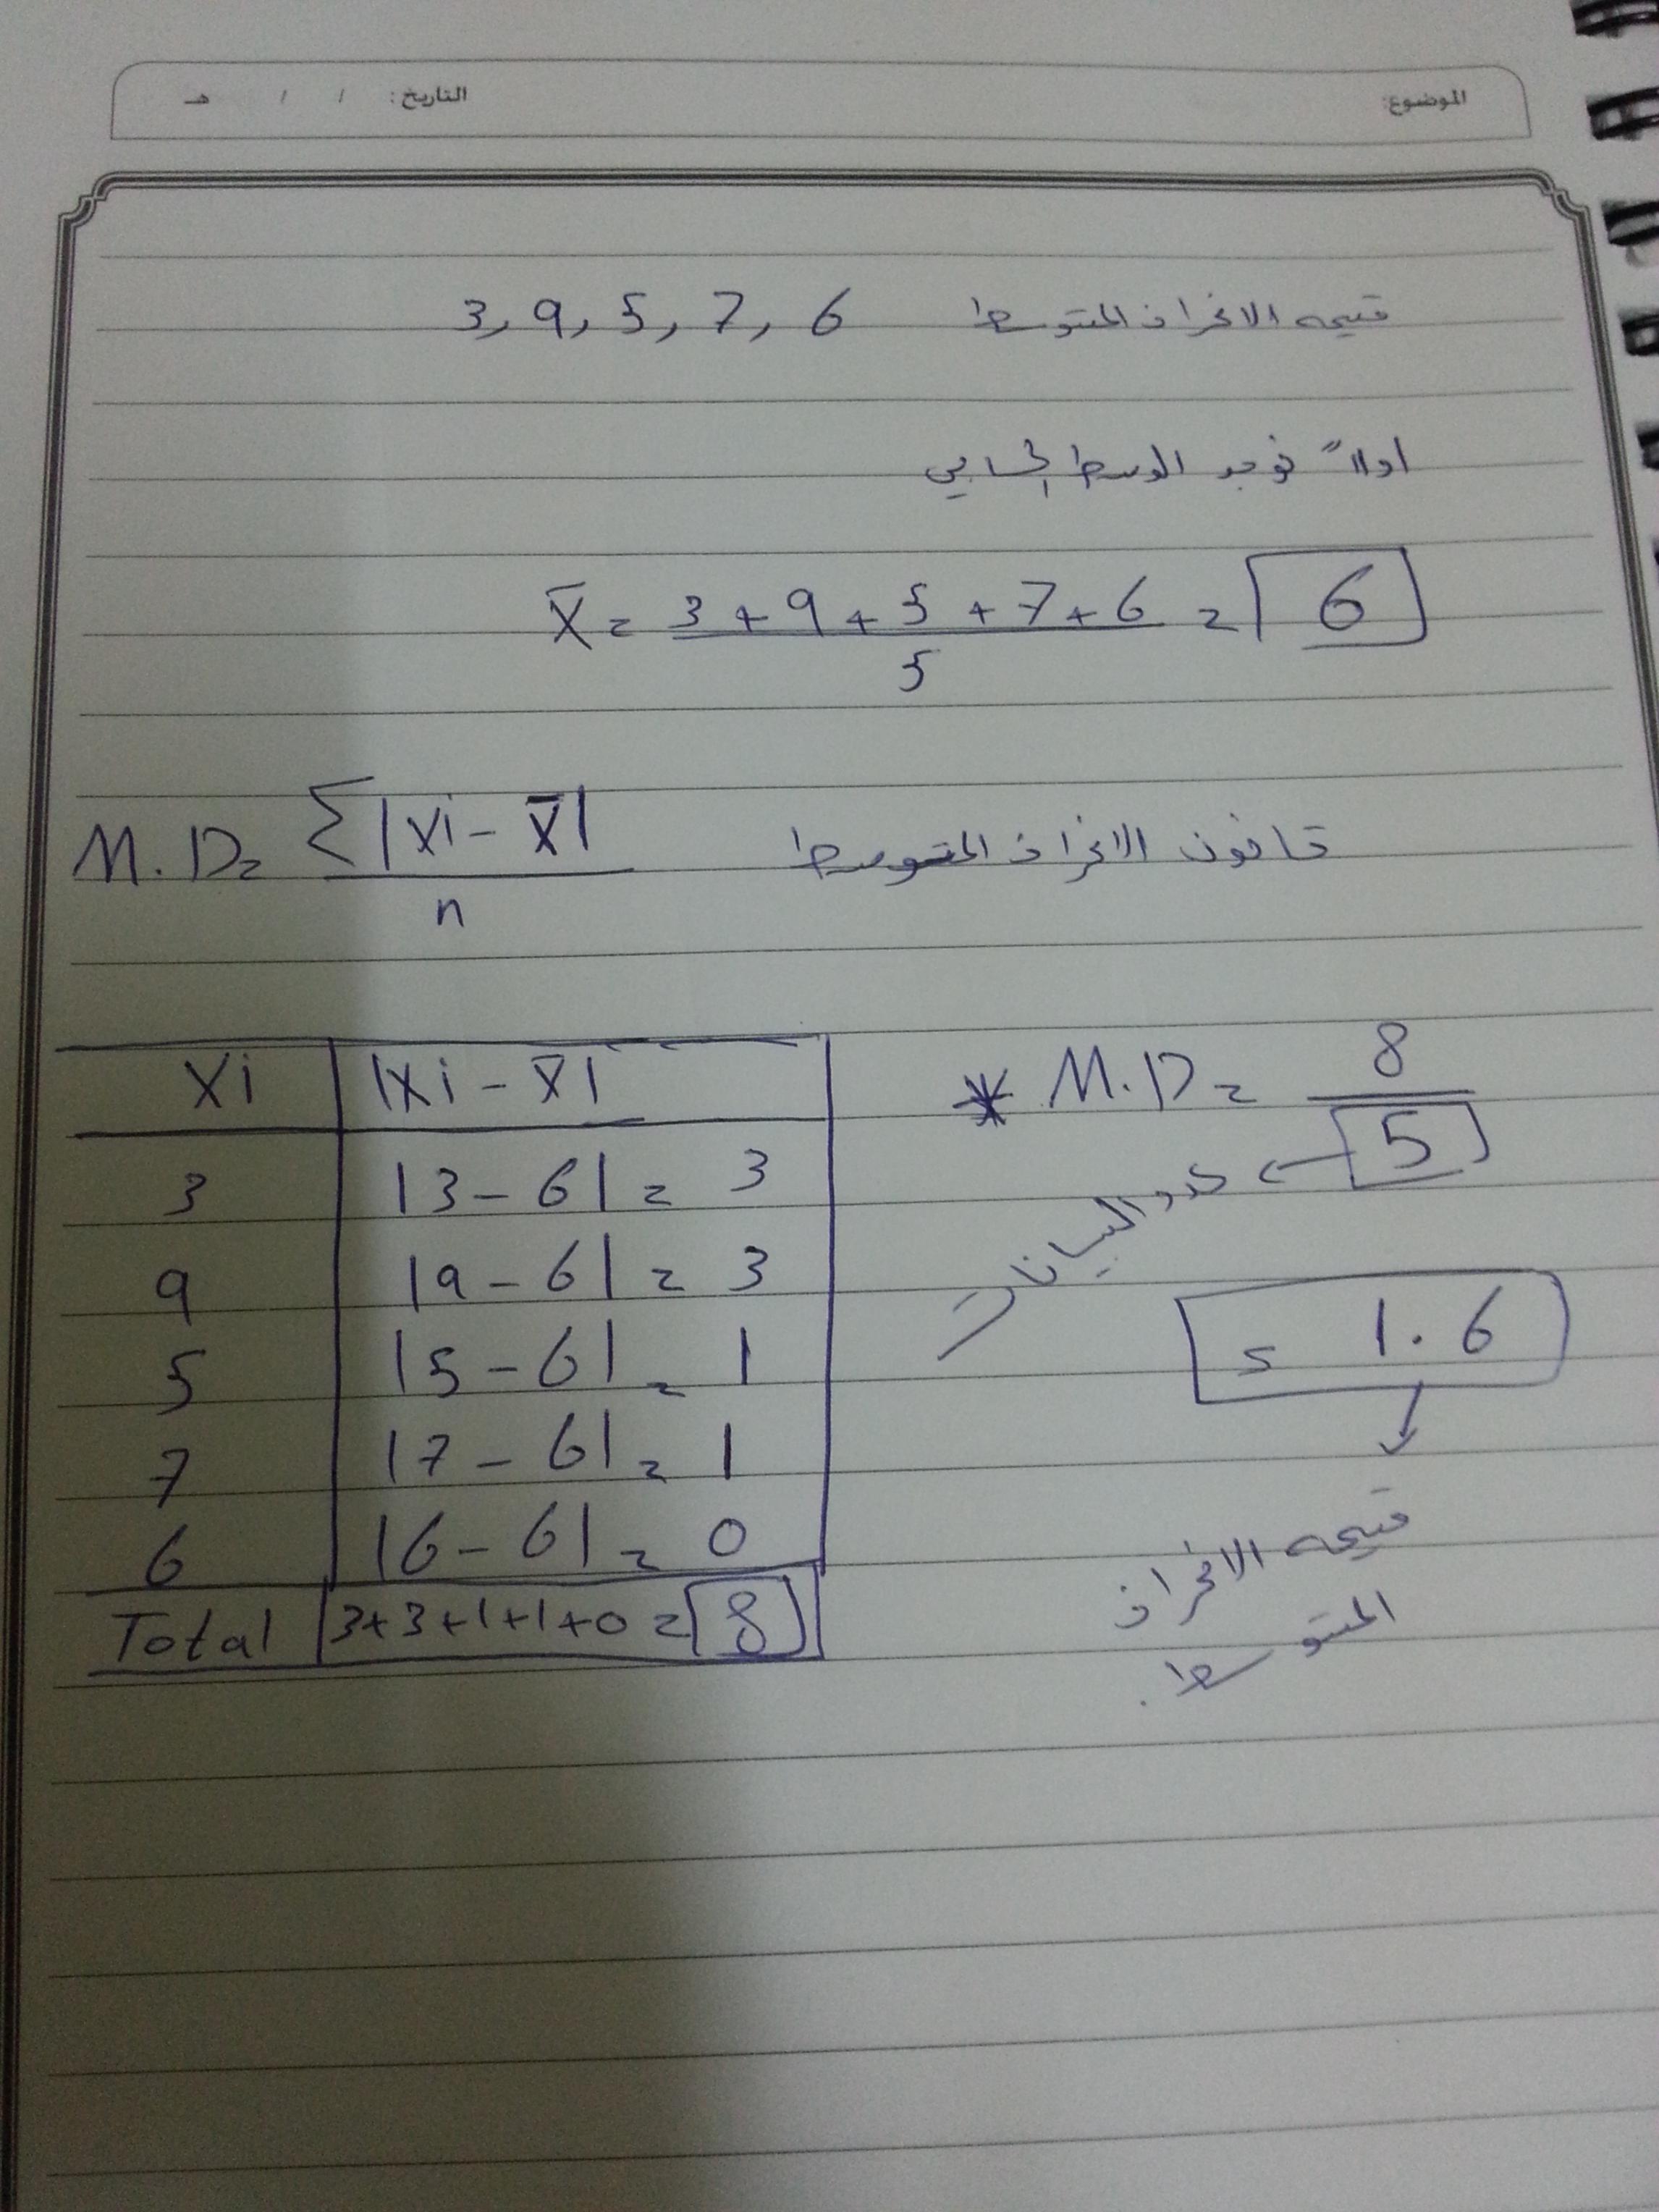 الموضوع: التاريخ: / / هـ
قيمه الانحراف المتوسط 3, 9, 5, 7, 6
اولاً نوجد الوسط الحسابي
x̄ = (3 + 9 + 5 + 7 + 6) / 5 = 6
قانون الانحراف المتوسط M.D = Σ|xi - x̄| / n
xi |xi - x̄|
3 |3 - 6| = 3
9 |9 - 6| = 3
5 |5 - 6| = 1
7 |7 - 6| = 1
6 |6 - 6| = 0
Total 3+3+1+1+0 = 8
* M.D = 8 / 5
← عدد البيانات
= 1.6
قيمه الانحراف
المتوسط.